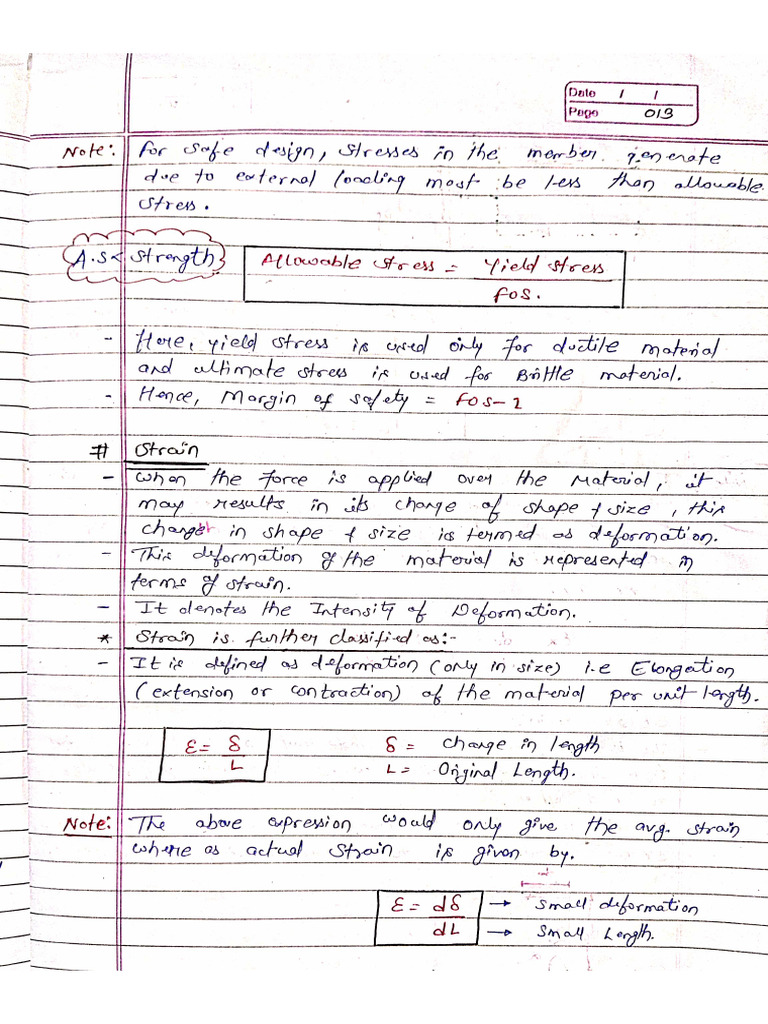 Date / /
Page 013
Note: For safe design, stresses in the member generate
due to external loading must be less than allowable
stress.
A.S< Strength
Allowable stress = Yield stress
FOS.
- Here, yield stress is used only for ductile material
and ultimate stress is used for Brittle material.
- Hence, Margin of safety = FOS-1
# Strain
- When the force is applied over the material, it
may results in its change of shape & size, this
change in shape & size is termed as deformation.
- This deformation of the material is represented in
terms of strain.
- It denotes the Intensity of Deformation.
* Strain is further classified as:-
- It is defined as deformation (only in size) i.e Elongation
(extension or contraction) of the material per unit length.
ε = δ
L
δ = change in length
L = Original Length.
Note: The above expression would only give the avg. strain
where as actual strain is given by.
ε = dδ → small deformation
dL → Small Length.